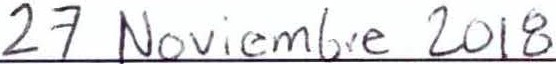 27 Noviembre 2018